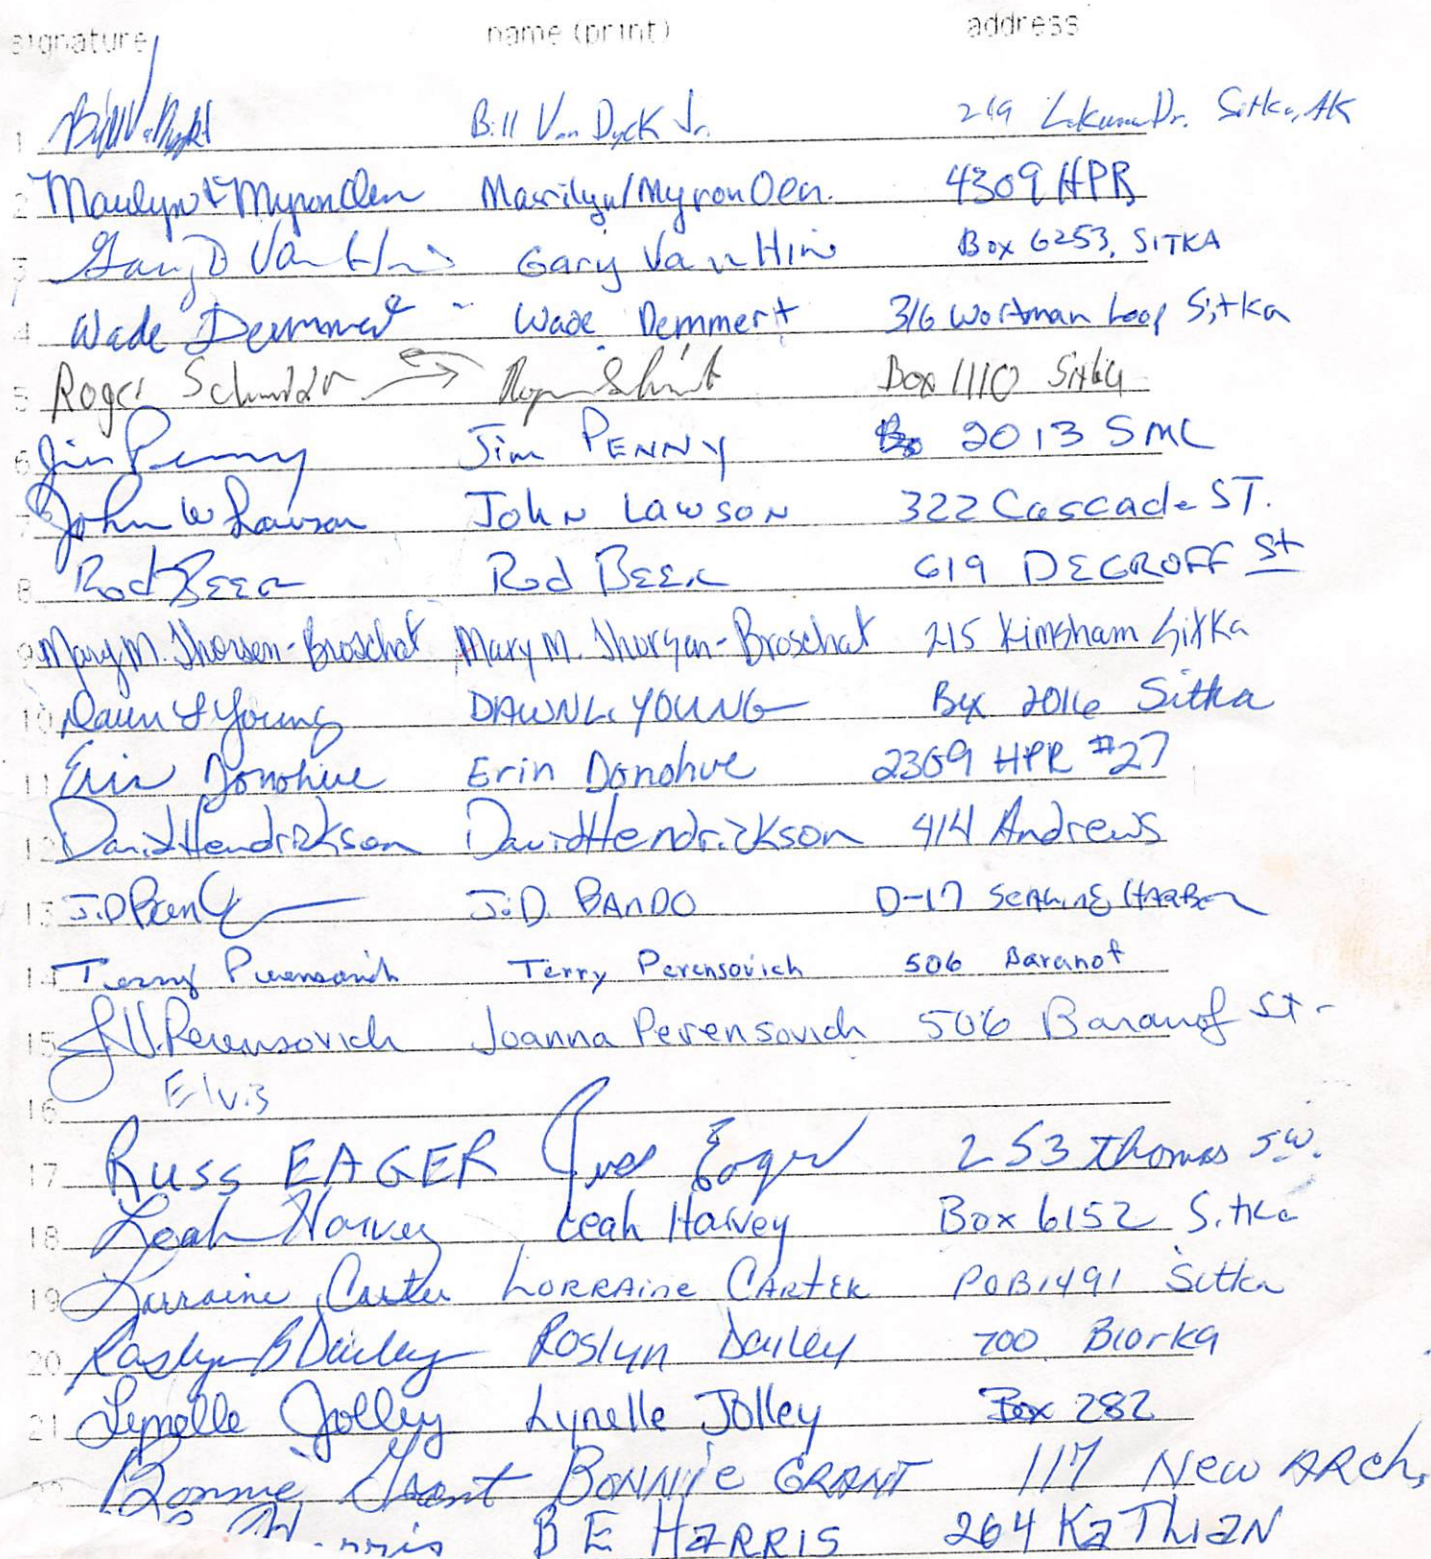 signature name (print) address
1 Bill Van Dyck Jr. 219 Lakeview Dr. Sitka, AK
2 Marilyn & Myron Oen Marilyn/Myron Oen. 4309 HPR
3 Gary D Van Hin Gary Van Hin Box 6253, SITKA
4 Wade Demmert Wade Demmert 316 Wortman Loop Sitka
5 Roger Schmidt Box 1110 Sitka
6 Jim Penny Jim PENNY 2013 SMC
7 John W Lawson John Lawson 322 Cascade ST.
8 Rod BEER Rod BEER 619 DEGROFF St
9 Mary M. Thorsen-Broschat Mary M. Thorsen-Broschat 215 Kimsham Sitka
10 Dawn L Young DAWN L. YOUNG Box 2016 Sitka
11 Erin Donohue Erin Donohue 2309 HPR #27
12 David Hendrickson David Hendrickson 414 Andrews
13 J.D. J.D. BANDO D-17 SEALING HARBOR
14 Terry Perensovich Terry Perensovich 506 Baranof
15 J.V. Perensovich Joanna Perensovich 506 Baranof St-
16 Elvis
17 RUSS EAGER Russ Eager 253 Thomas
18 Leah Harvey Leah Harvey Box 6152 Sitka
19 Lorraine Carter LORRAINE CARTER POB 1491 Sitka
20 Roslyn B Dailey Roslyn Dailey 700 Biorka
21 Lynelle Jolley Lynelle Jolley Box 282
Bonnie Grant BONNIE GRANT 117 New ARch,
Harris B E HARRIS 264 KaThiaN